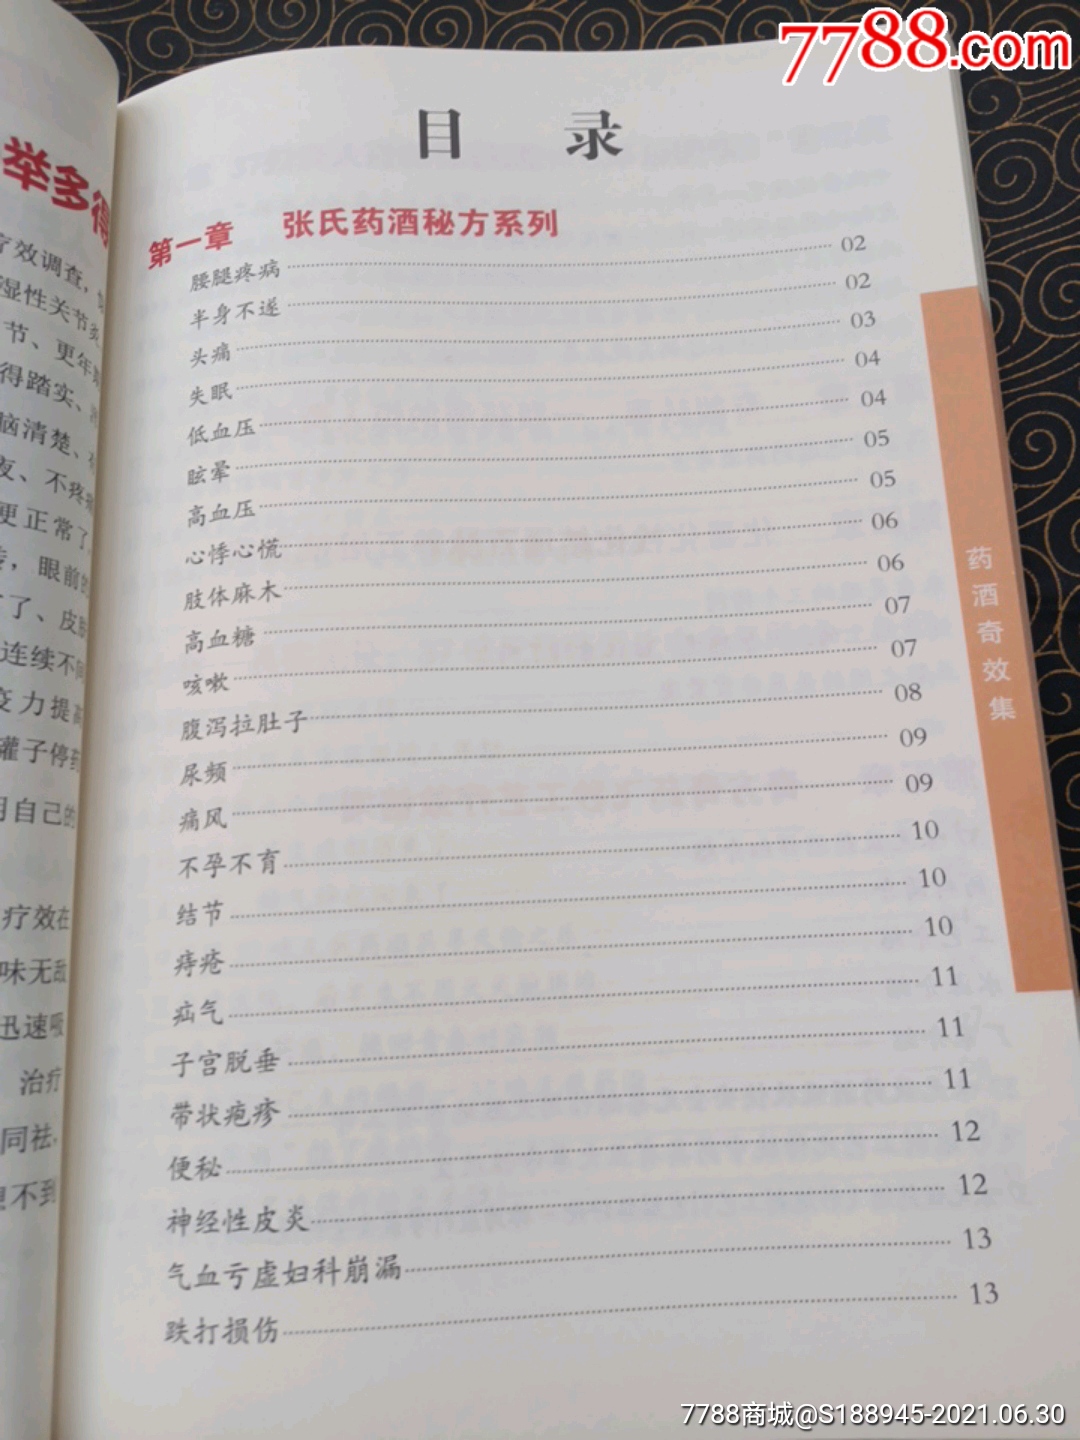 7788.com
举多得
疗效调查，
湿性关节炎
节、更年
得踏实、
脑清楚、
夜、不疼
更正常了
，眼前的
了、皮肤
连续不同
疫力提高
罐子停药
用自己的
疗效在
味无敌
迅速吸
治疗
同祛
想不到
目 录
第一章 张氏药酒秘方系列
腰腿疼病 02
半身不遂 02
头痛 03
失眠 04
低血压 04
眩晕 05
高血压 05
心悸心慌 06
肢体麻木 06
高血糖 07
咳嗽 07
腹泻拉肚子 08
尿频 09
痛风 09
不孕不育 10
结节 10
痔疮 10
疝气 11
子宫脱垂 11
带状疱疹 11
便秘 12
神经性皮炎 12
气血亏虚妇科崩漏 13
跌打损伤 13
药酒奇效集
7788商城@S188945-2021.06.30